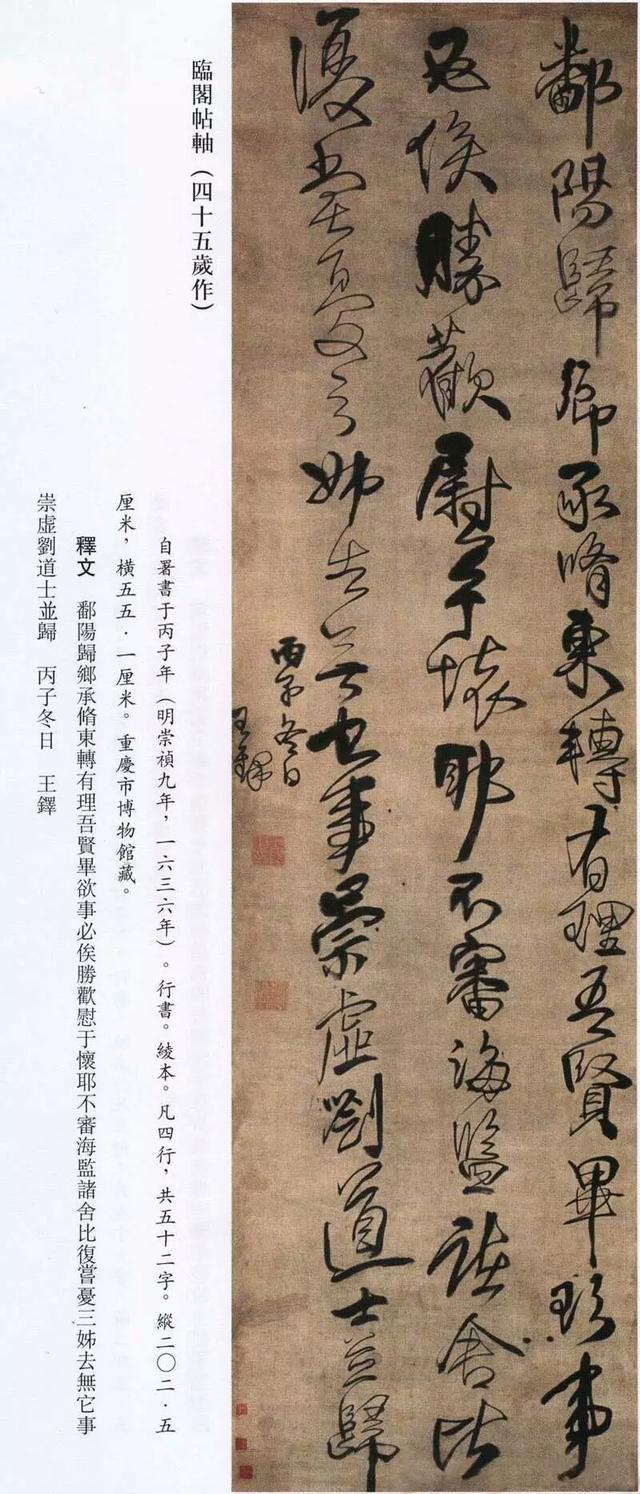 鄱陽歸鄉承脩東轉有理吾賢畢欲事
必俟勝歡慰于懷耶不審海監諸舍比
復嘗憂三姊去無它事崇虛劉道士並歸
丙子冬日
王鐸
臨閣帖軸（四十五歲作）
自署書于丙子年（明崇禎九年，一六三六年）。行書。綾本。凡四行，共五十二字。縱二〇二·五
厘米，橫五五·一厘米。重慶市博物館藏。
釋文　鄱陽歸鄉承脩東轉有理吾賢畢欲事必俟勝歡慰于懷耶不審海監諸舍比復嘗憂三姊去無它事
崇虛劉道士並歸　丙子冬日　王鐸